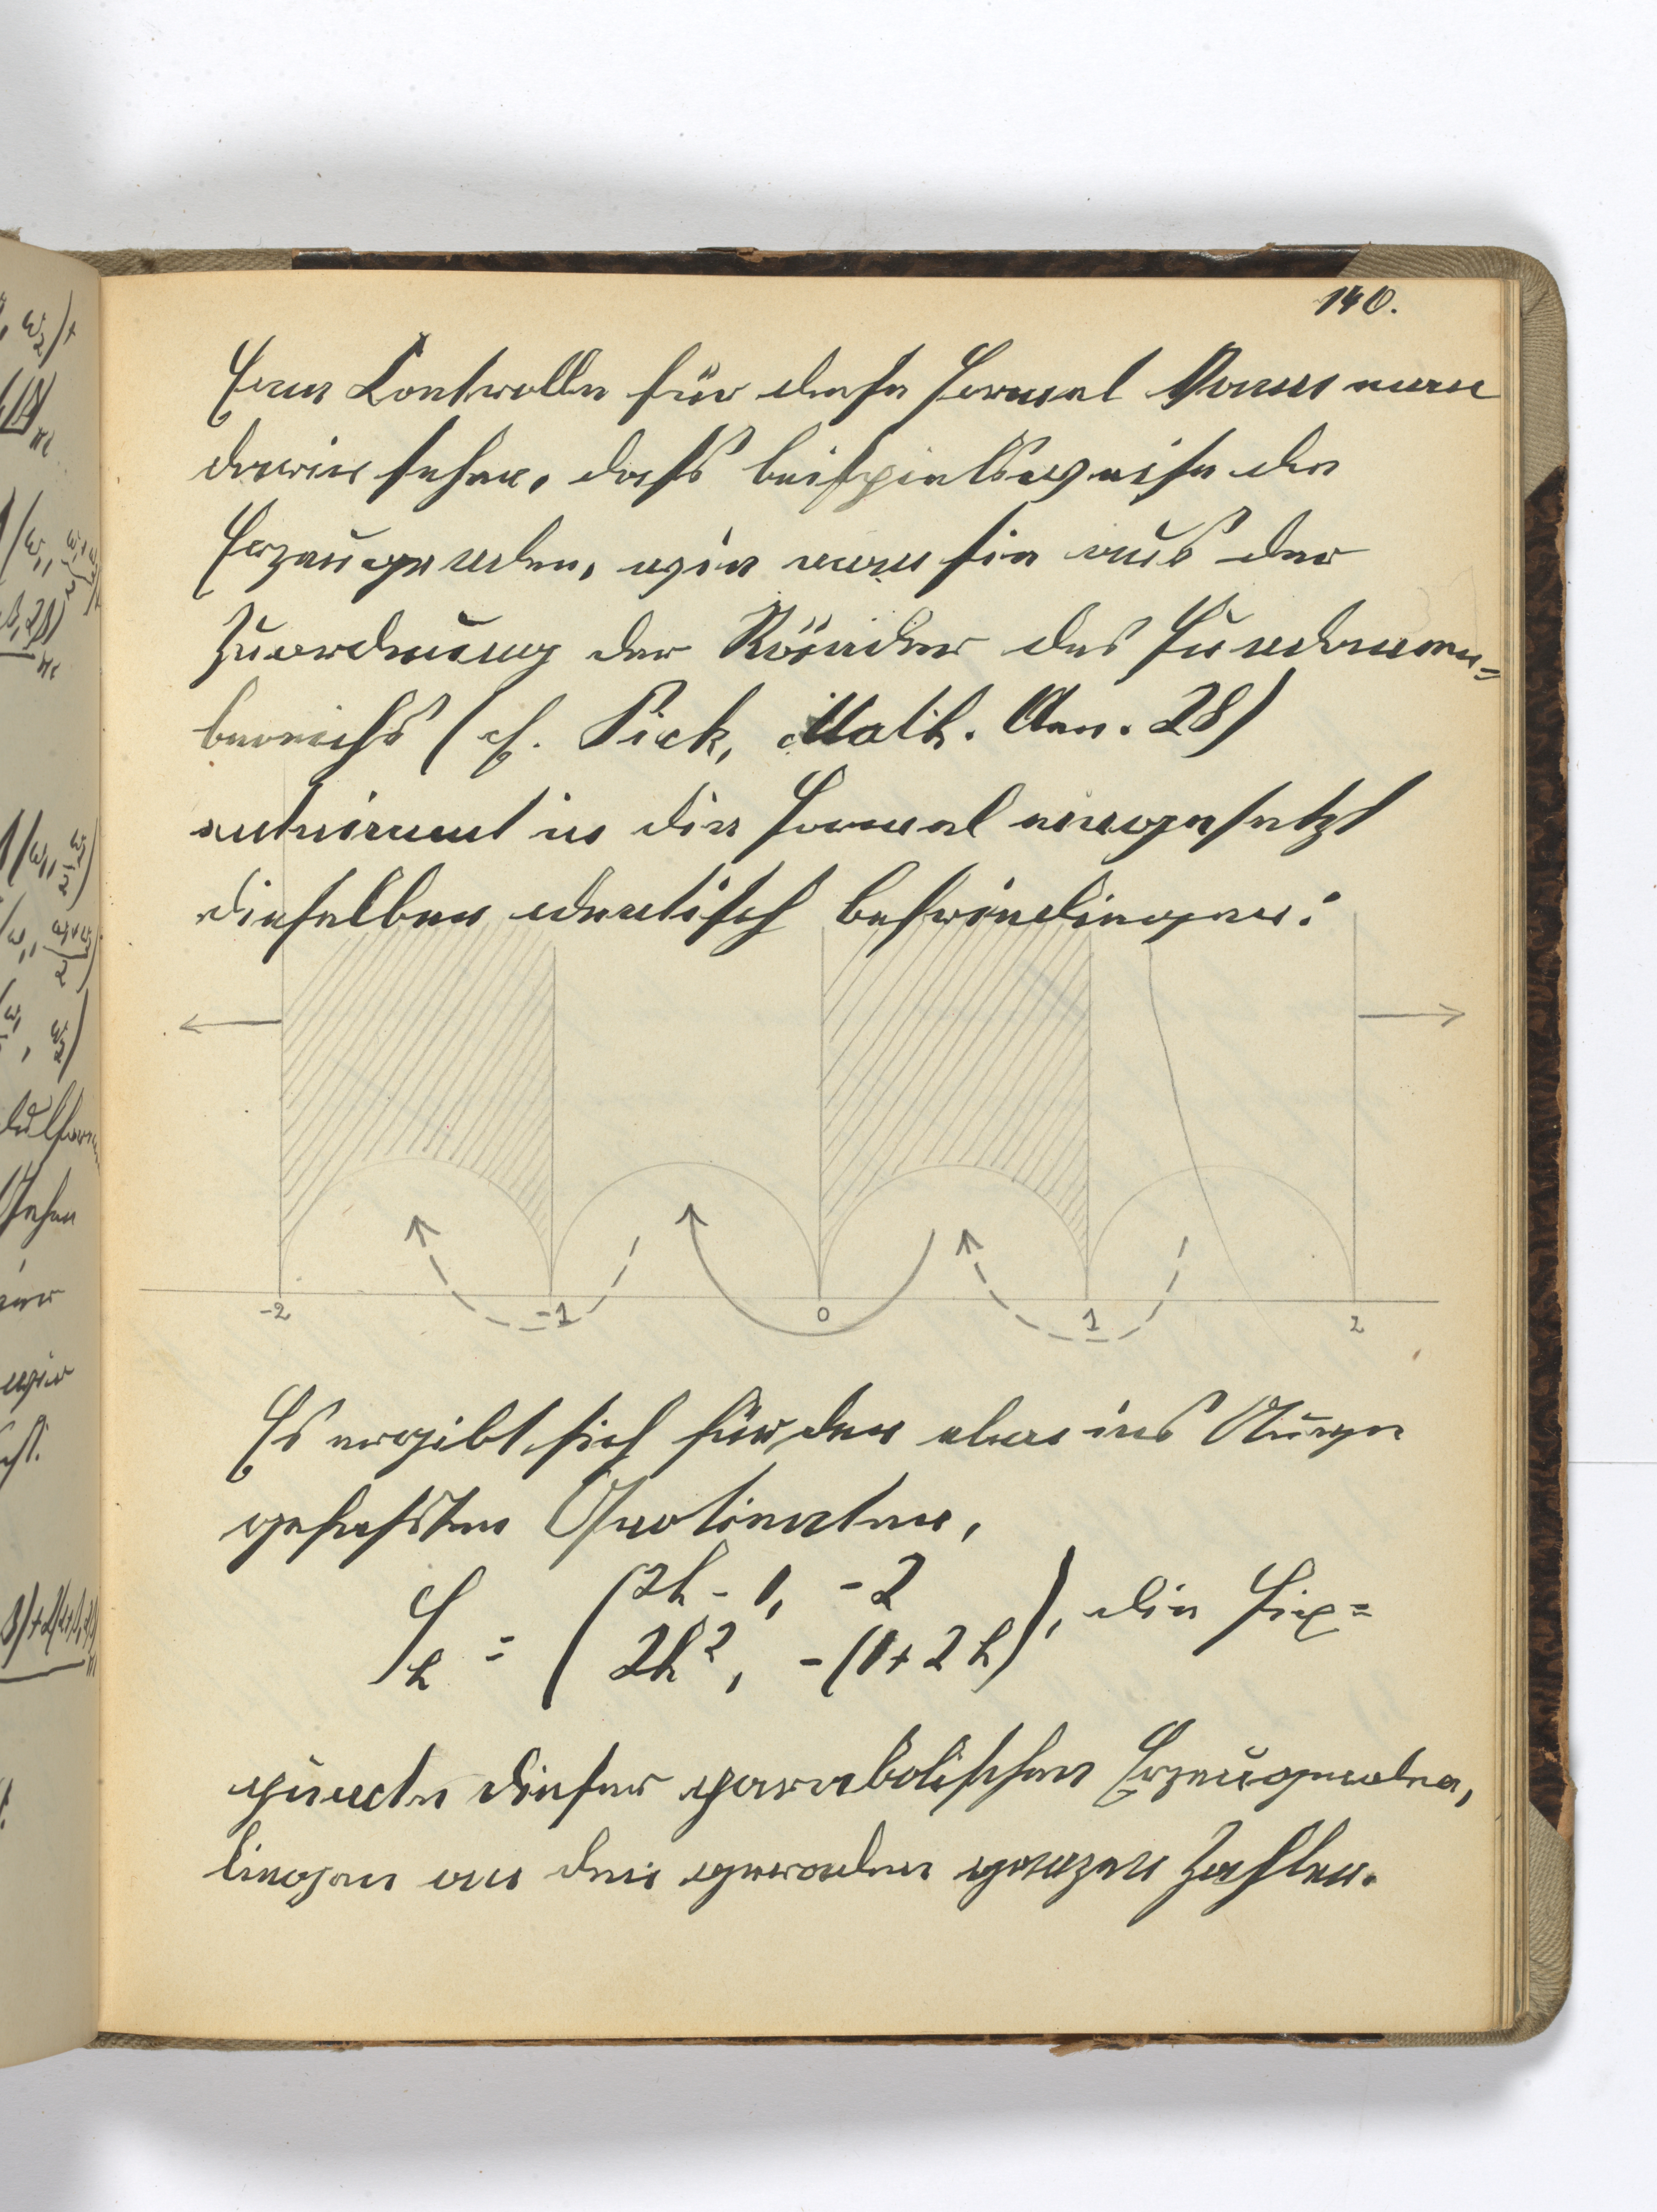 140.
Eine Kontrolle für diese Formel kann man
darin sehen, dass beispielsweise die
Erzeugenden, wie man sie aus der
Zuordnung der Ränder des Fundamen=
bereichs (cf. Pick, Math. Ann. 28)
entnimmt in die Formel eingesetzt
dieselben identisch befriedigen:
-2 -1 0 1 2
Es ergibt sich für den eben ins Auge
gefassten Quotienten,
S_h = (2h - 1, -2
2h², -(1+2h)), die Fix=
puncte dieser parabolischen Erzeugenden,
liegen an den geraden ganzen Zahlen.